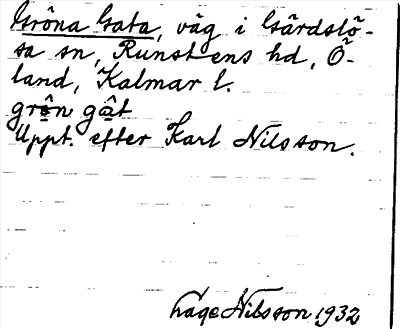 Gröna Gata, väg i Gärdslö-
sa sn, Runstens hd, Ö-
land, Kalmar l.
grôn gât
Uppt. efter Karl Nilsson.
Lage Nilsson 1932